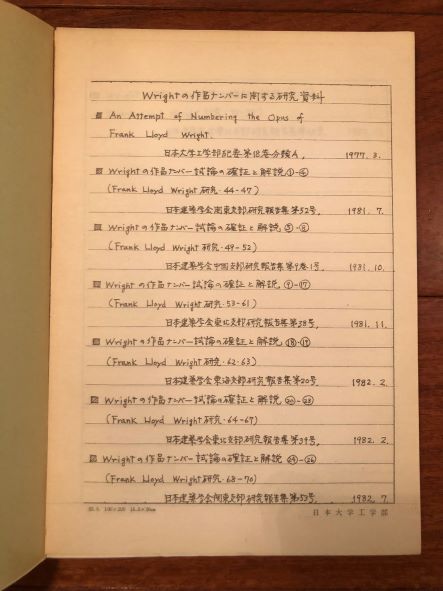 Wrightの作品ナンバーに関する研究資料
An Attempt of Numbering the Opus of
Frank Lloyd Wright.
日本大学工学部紀要第18巻分類A, 1977.3.
Wrightの作品ナンバー試論の確証と解説①-④
(Frank Lloyd Wright研究・44-47)
日本建築学会関東支部研究報告集第52号, 1981.7.
Wrightの作品ナンバー試論の確証と解説⑤-⑧
(Frank Lloyd Wright研究・49-52)
日本建築学会中国支部研究報告集第9巻1号, 1981.10.
Wrightの作品ナンバー試論の確証と解説⑨-⑰
(Frank Lloyd Wright研究・53-61)
日本建築学会東北支部研究報告集第38号, 1981.11.
Wrightの作品ナンバー試論の確証と解説⑱-⑲
(Frank Lloyd Wright研究・62-63)
日本建築学会東海支部研究報告集第20号, 1982.2.
Wrightの作品ナンバー試論の確証と解説⑳-㉓
(Frank Lloyd Wright研究・64-67)
日本建築学会東北支部研究報告集第39号, 1982.2.
Wrightの作品ナンバー試論の確証と解説㉔-㉖
(Frank Lloyd Wright研究・68-70)
日本建築学会関東支部研究報告集第53号, 1982.7.
日本大学工学部